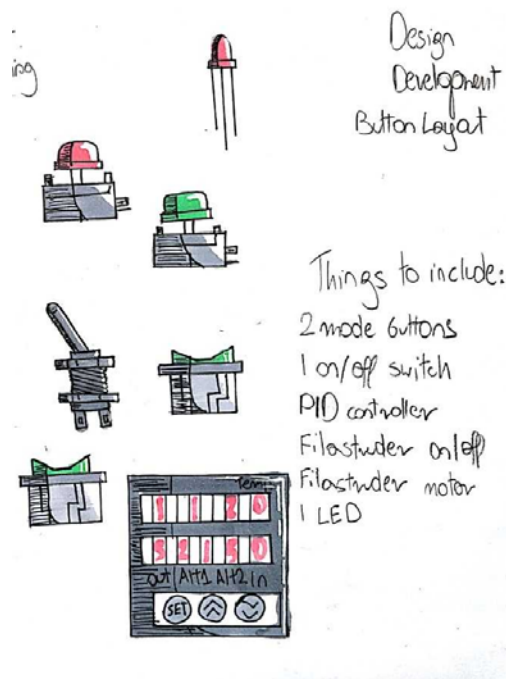 ing
Design
Development
Button Layout
Things to include:
2 mode buttons
1 on/off switch
PID controller
Filastruder on/off
Filastruder motor
1 LED
out Alt1 Alt2 in
SET